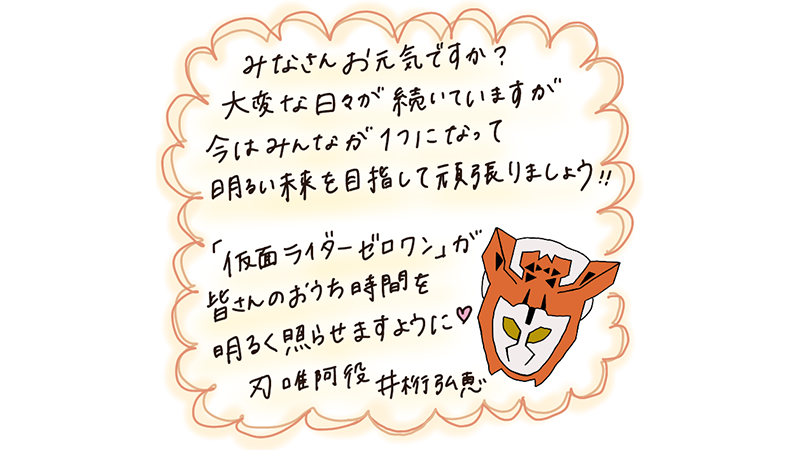 みなさんお元気ですか？
大変な日々が続いていますが
今はみんなが1つになって
明るい未来を目指して頑張りましょう!!
「仮面ライダーゼロワン」が
皆さんのおうち時間を
明るく照らせますように♡
刃唯阿役 井桁弘恵